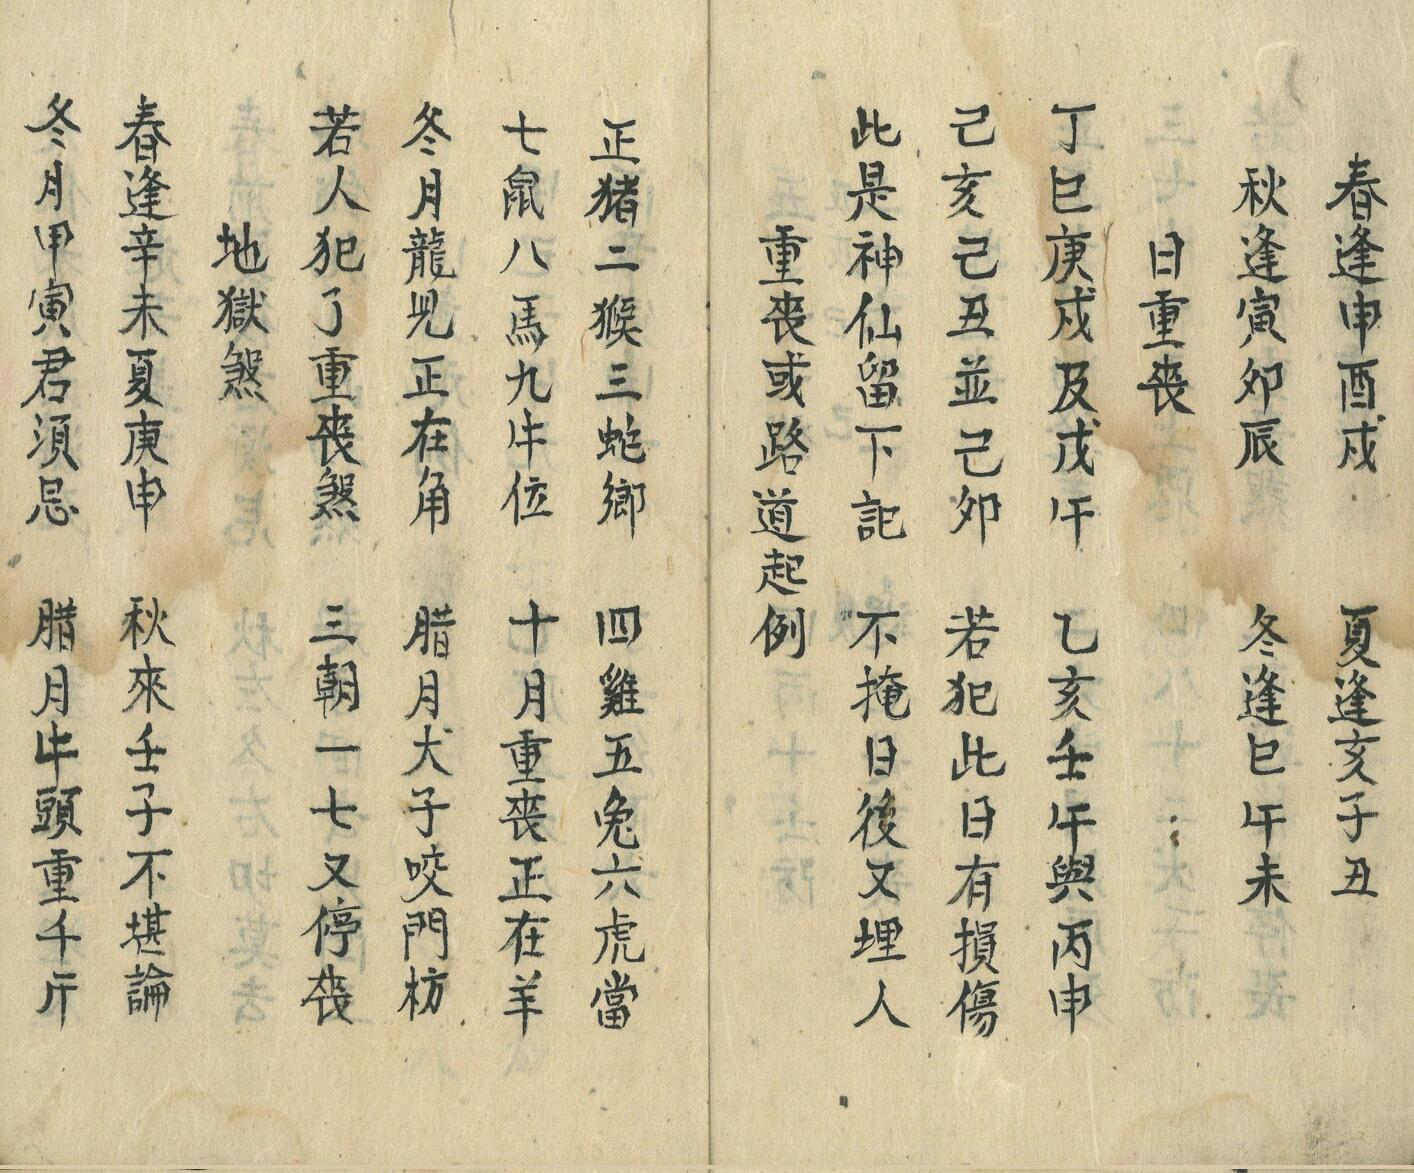 春逢申酉戍　夏逢亥子丑
秋逢寅卯辰　冬逢巳午未
日重丧
丁巳庚戍及戊午　乙亥壬午與丙申
己亥己丑並己卯　若犯此日有損傷
此是神仙留下記　不掩日後又埋人
重丧或路道起例
正猪二猴三蛇鄉　四雞五兔六虎當
七鼠八馬九牛位　十月重丧正在羊
冬月龍児正在角　腊月犬子咬門枋
若人犯了重丧煞　三朝一七又停丧
地獄煞
春逢辛未夏庚申　秋來壬子不堪論
冬月甲寅君須忌　腊月牛頭重千斤